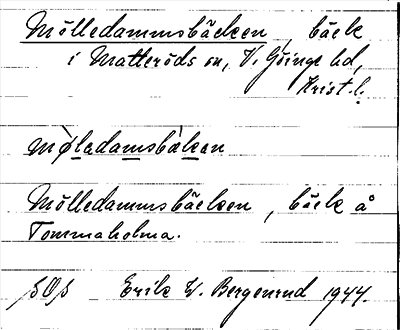 Mölledammsbäcken, bäck
i Matteröds sn, V. Göinge hd,
Krist. l.
mø̀ladamsbàkan
Mölledammsbäcken, bäck å
Tommaholma.
Erik W. Bergenrud 1944.